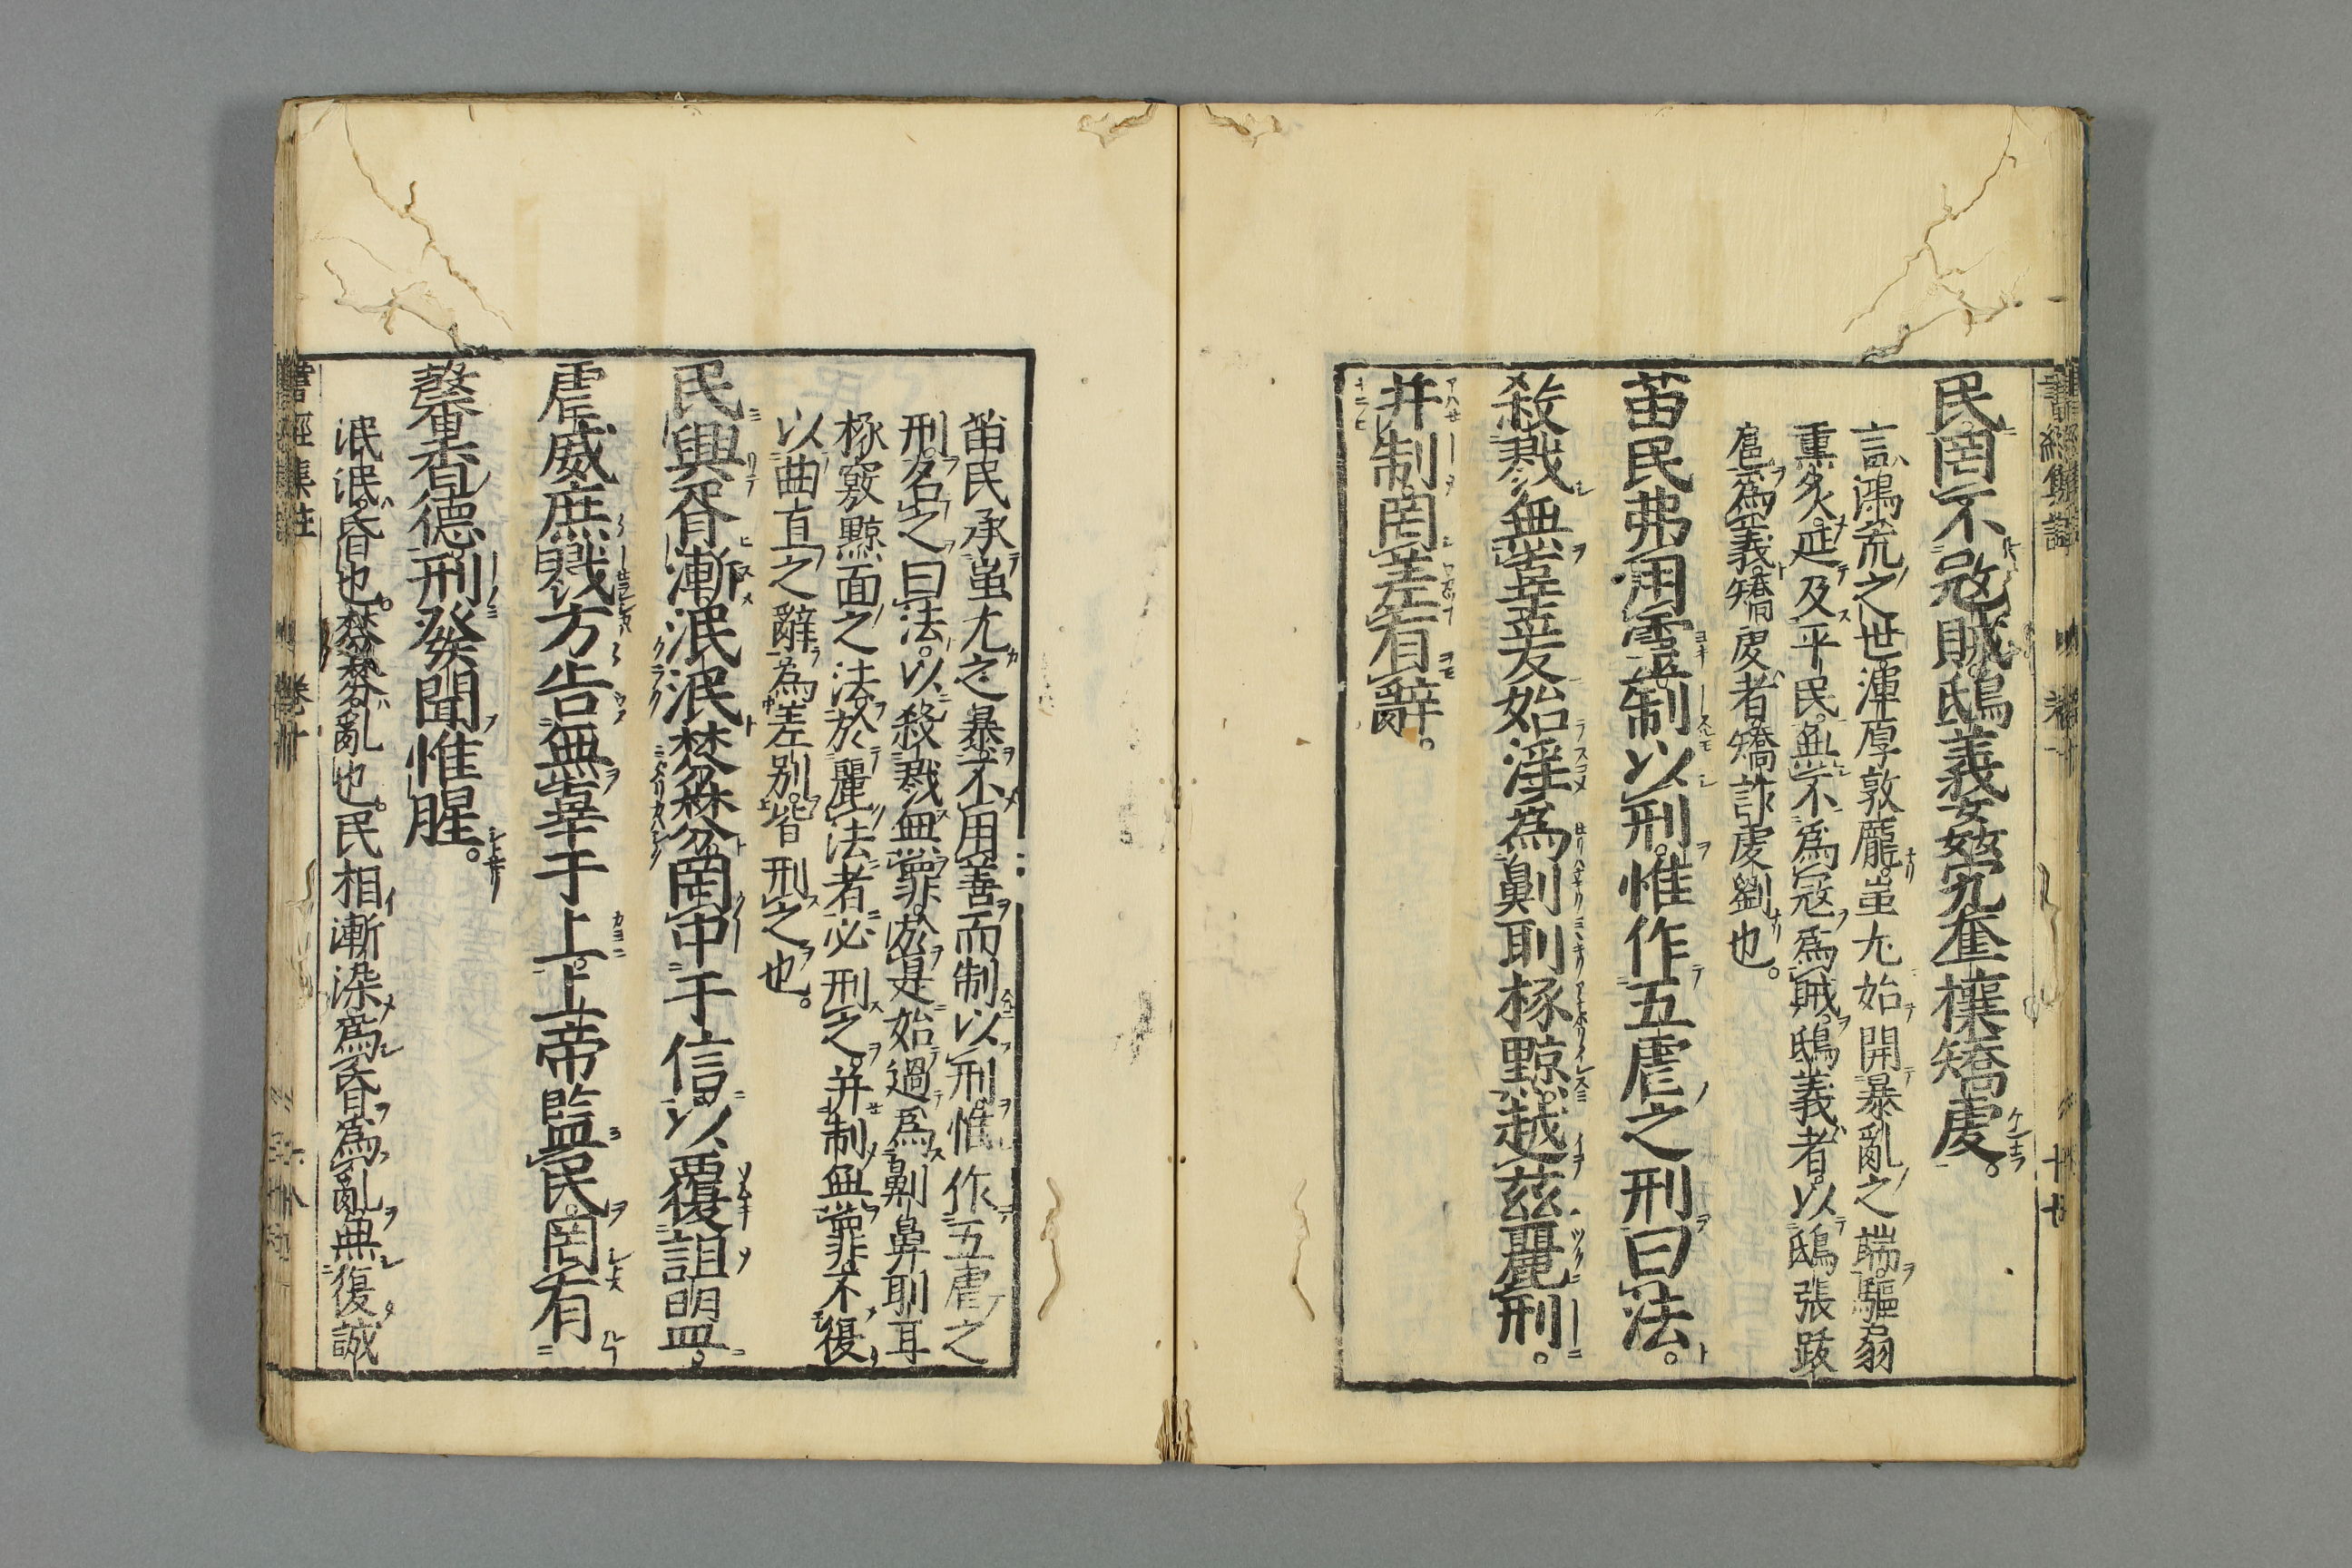 民罔不寇賊鴟義姦宄奪攘矯虔。
言鴻荒之世渾厚敦厖蚩尤始開暴亂之端驅扇
熏炙延及平民無不爲寇爲賊鴟義者以鴟張跋
扈爲義矯虔者矯詐虔劉也。
苗民弗用靈制以刑惟作五虐之刑曰法。
殺戮無辜爰始淫爲劓刵椓黥越茲麗刑。
幷制罔差有辭。
苗民承蚩尤之暴不用善而制以刑惟作五虐之
刑名之曰法。以殺戮無罪於是始過爲劓鼻刵耳
椓竅黥面之法於麗法者必刑之幷制無罪不復
以曲直之辭爲差別皆刑之也。
民興胥漸泯泯棼棼罔中于信以覆詛盟。
虐威庶戮方告無辜于上上帝監民罔有
馨香德刑發聞惟腥。
泯泯昏也。棼棼亂也。民相漸染爲昏爲亂無復誠
書經集註
卷十